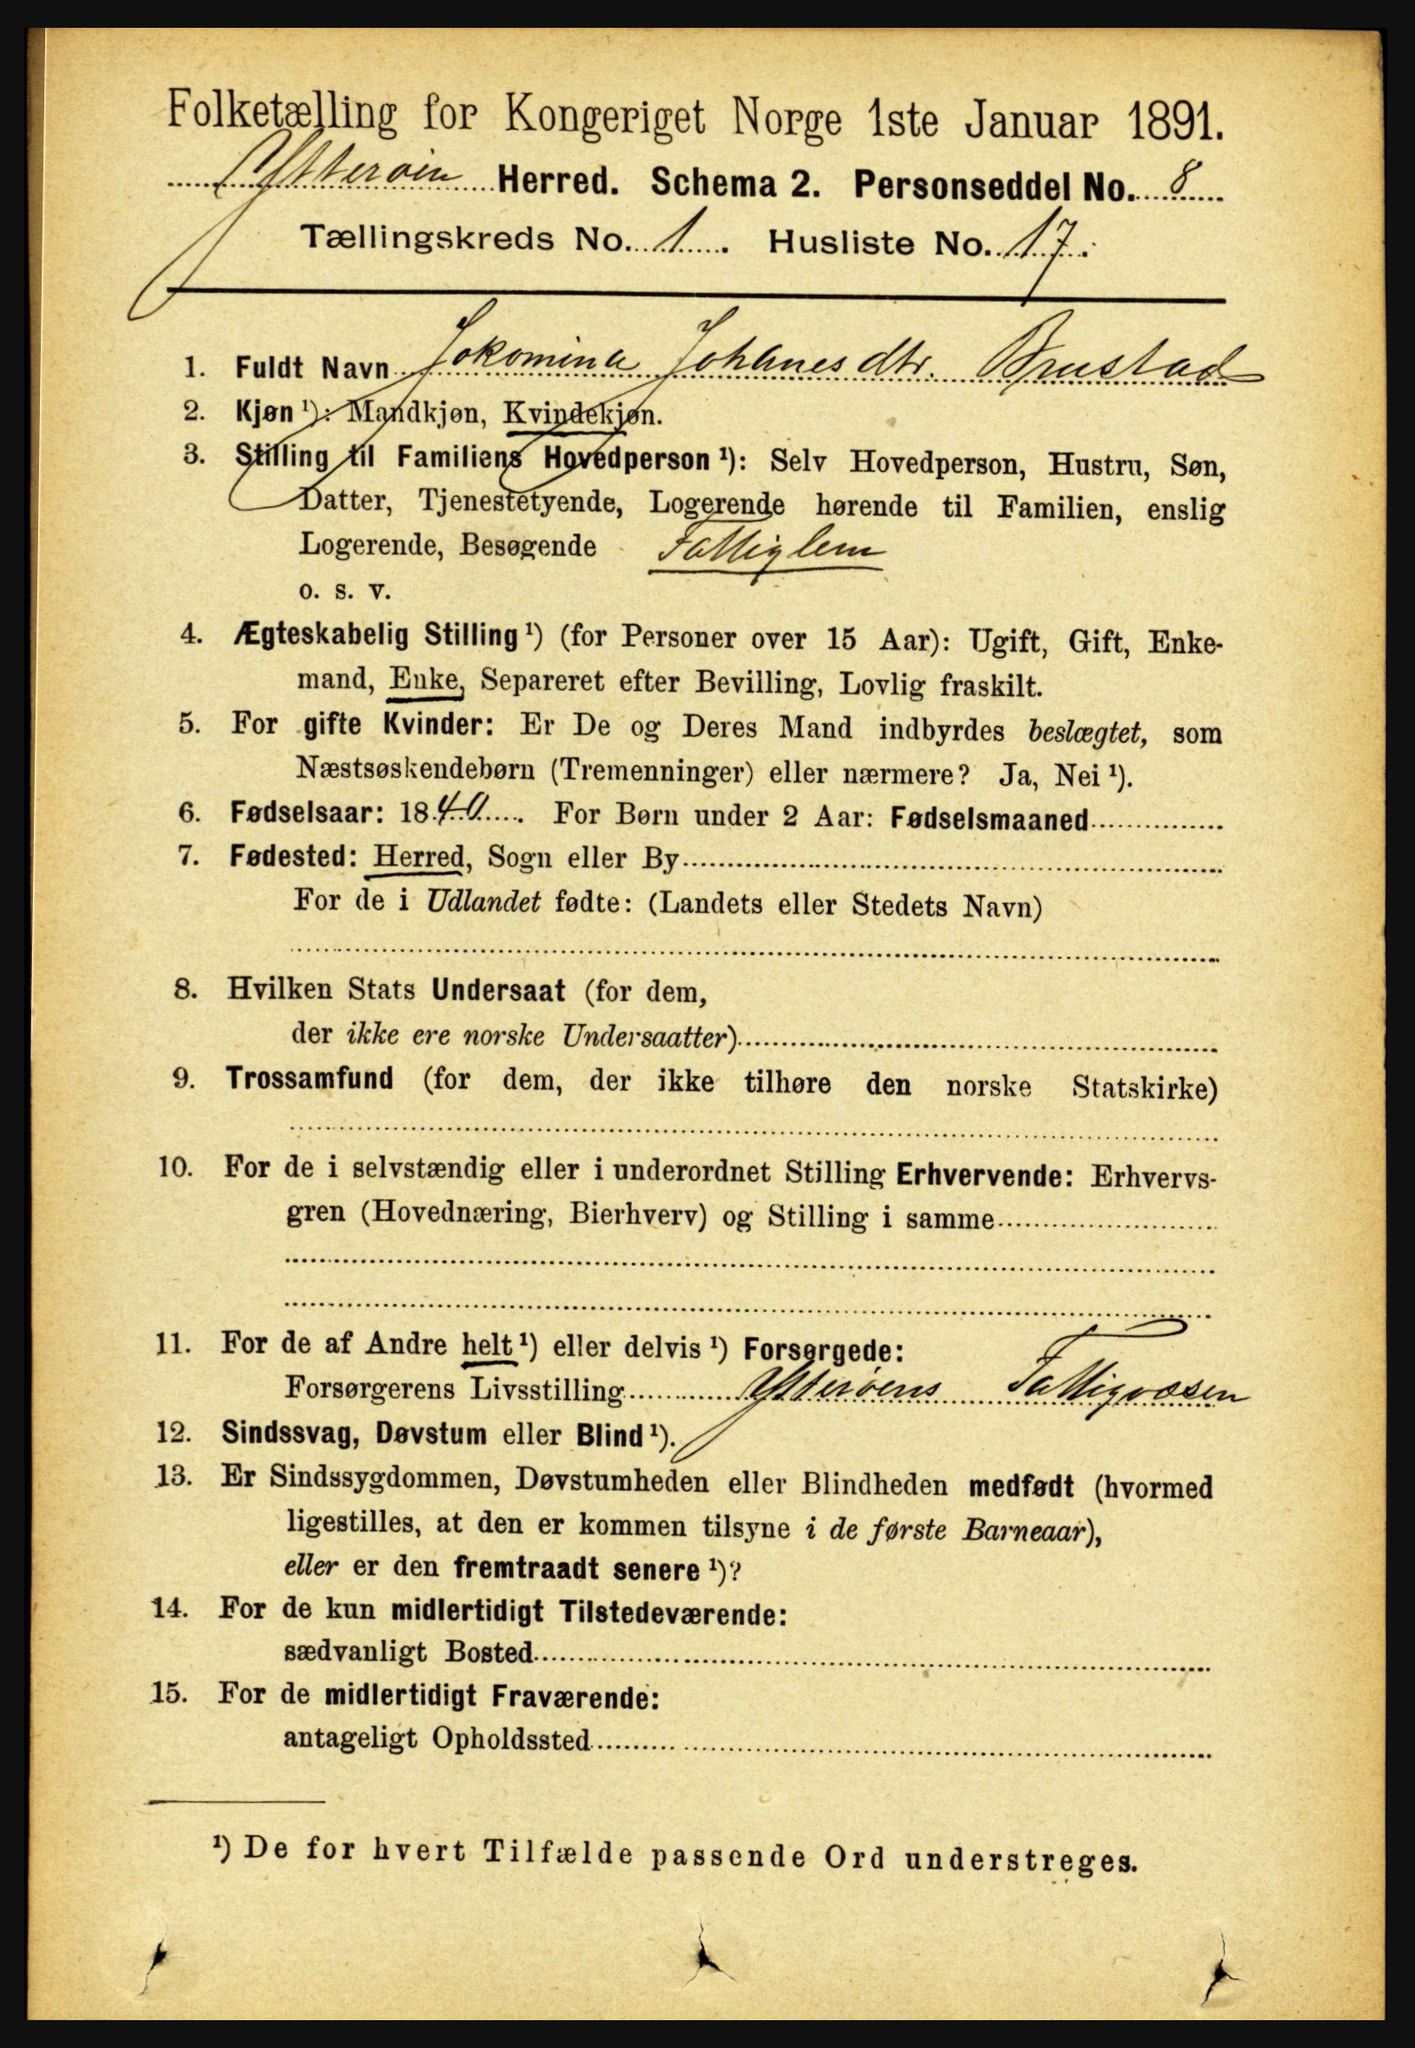 Folketælling for Kongeriget Norge 1ste Januar 1891.
Ytterøien Herred. Schema 2. Personseddel No. 8
Tællingskreds No. 1. Husliste No. 17.
1. Fuldt Navn Jokomina Johanesdtr. Brustad
2. Kjøn ¹): Mandkjøn, Kvindekjøn.
3. Stilling til Familiens Hovedperson ¹): Selv Hovedperson, Hustru, Søn,
Datter, Tjenestetyende, Logerende hørende til Familien, enslig
Logerende, Besøgende Fattiglem
o. s. v.
4. Ægteskabelig Stilling ¹) (for Personer over 15 Aar): Ugift, Gift, Enke-
mand, Enke, Separeret efter Bevilling, Lovlig fraskilt.
5. For gifte Kvinder: Er De og Deres Mand indbyrdes beslægtet, som
Næstsøskendebørn (Tremenninger) eller nærmere? Ja, Nei ¹).
6. Fødselsaar: 1840. For Børn under 2 Aar: Fødselsmaaned
7. Fødested: Herred, Sogn eller By
For de i Udlandet fødte: (Landets eller Stedets Navn)
8. Hvilken Stats Undersaat (for dem,
der ikke ere norske Undersaatter)
9. Trossamfund (for dem, der ikke tilhøre den norske Statskirke)
10. For de i selvstændig eller i underordnet Stilling Erhvervende: Erhvervs-
gren (Hovednæring, Bierhverv) og Stilling i samme
11. For de af Andre helt ¹) eller delvis ¹) Forsørgede:
Forsørgerens Livsstilling Ytterøens Fattigvæsen
12. Sindssvag, Døvstum eller Blind ¹).
13. Er Sindssygdommen, Døvstumheden eller Blindheden medfødt (hvormed
ligestilles, at den er kommen tilsyne i de første Barneaar),
eller er den fremtraadt senere ¹)?
14. For de kun midlertidigt Tilstedeværende:
sædvanligt Bosted
15. For de midlertidigt Fraværende:
antageligt Opholdssted
¹) De for hvert Tilfælde passende Ord understreges.